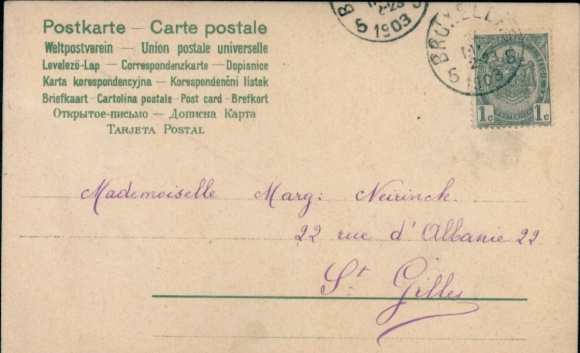 Postkarte — Carte postale
Weltpostverein — Union postale universelle
Levelező-Lap — Correspondenzkarte — Dopisnice
Karta korespondencyjna — Korespondenční listek
Briefkaart - Cartolina postale - Post card - Brefkort
Открытое-письмо — Дописна Карта
Tarjeta Postal
5 1903
BRUXELLES
5 1903
1c 1c
Mademoiselle Marg: Neirinck.
22 rue d'Albanie 22.
St Gilles